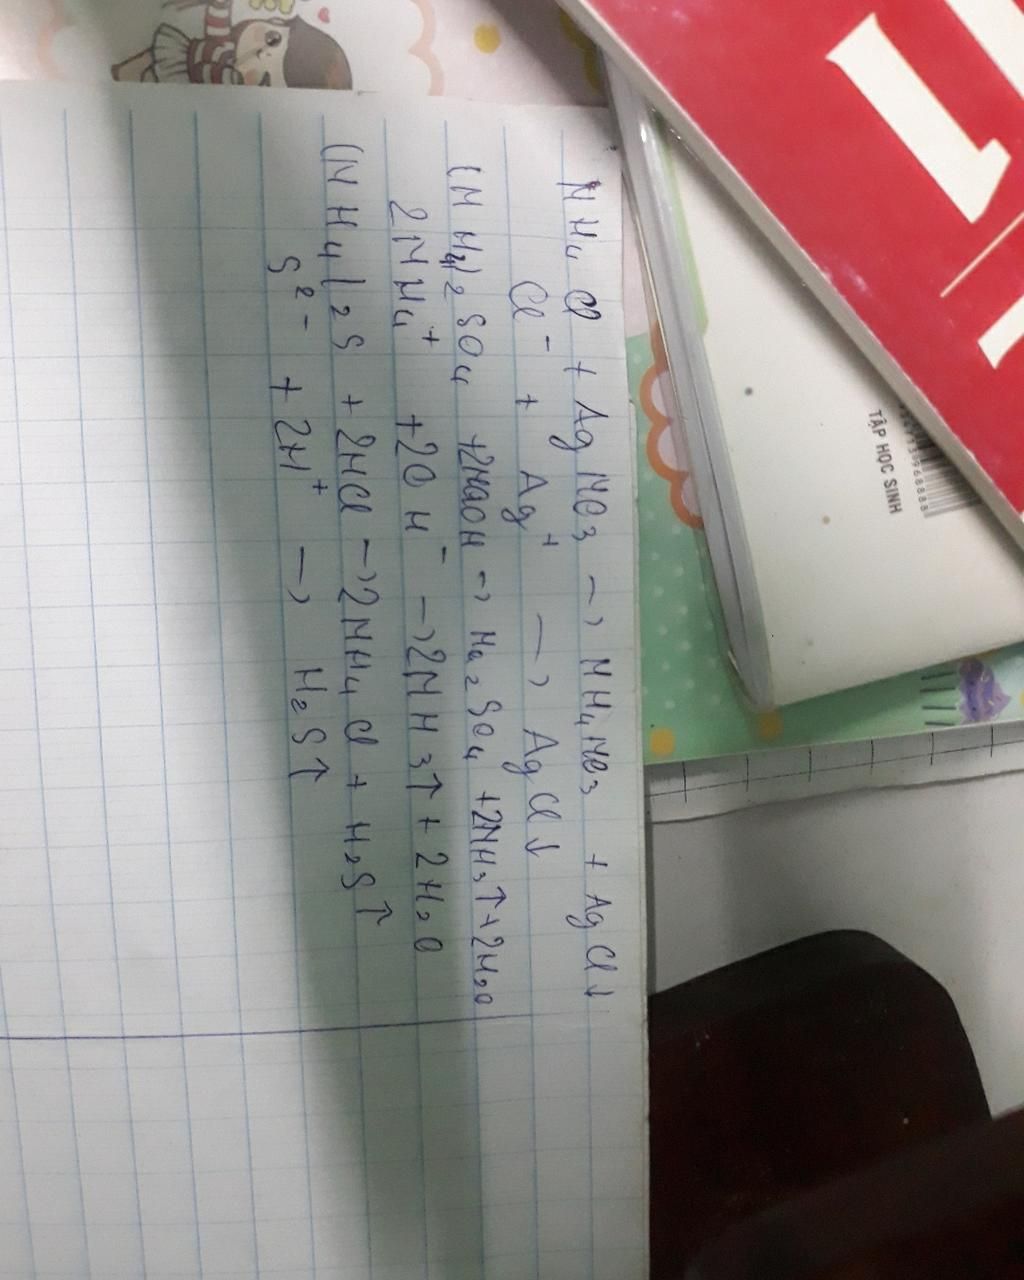 NH₄Cl + AgNO₃ → NH₄NO₃ + AgCl↓
Cl⁻ + Ag⁺ → AgCl↓
(NH₄)₂SO₄ +2NaOH → Na₂SO₄ +2NH₃↑+2H₂O
2NH₄⁺ +2OH⁻ → 2NH₃↑ + 2H₂O
(NH₄)₂S + 2HCl → 2NH₄Cl + H₂S↑
S²⁻ + 2H⁺ → H₂S↑
TẬP HỌC SINH